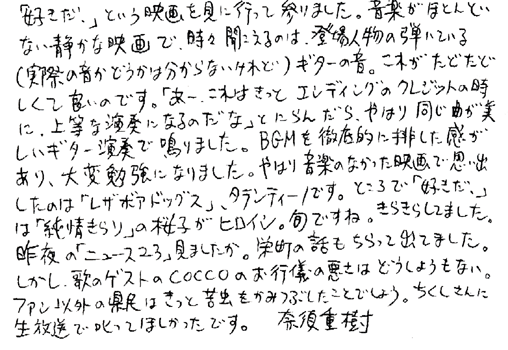 「好きだ、」という映画を見に行って参りました。音楽がほとんど
ない静かな映画で、時々聞こえるのは、登場人物の弾いている
(実際の音かどうかは分からないけれど)ギターの音。これがたどたど
しくて良いのです。「あー、これはきっとエンディングのクレジットの時
に、上等な演奏になるのだな」とにらんだら、やはり同じ曲が美
しいギター演奏で鳴りました。BGMを徹底的に排した感が
あり、大変勉強になりました。やはり音楽のなかった映画で思い出
したのは「レザボアドッグス」、タランティーノです。ところで「好きだ、」
は「純情きらり」の桜子がヒロイン。旬ですね。きらきらしてました。
昨夜の「ニュース23」見ましたか。栄町の話もちらって出てました。
しかし、歌のゲストのCOCCOのお行儀の悪さはどうしようもない。
ファン以外の県民はきっと苦虫をかみつぶしたことでしょう。ちくしさんに
生放送で叱ってほしかったです。 奈須重樹